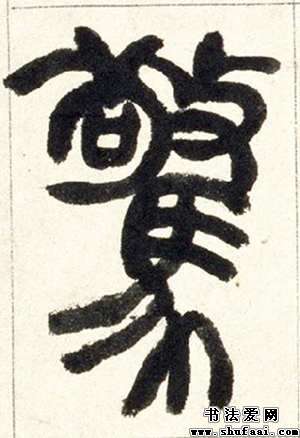 驚
书法爱网
www.shufaai.com